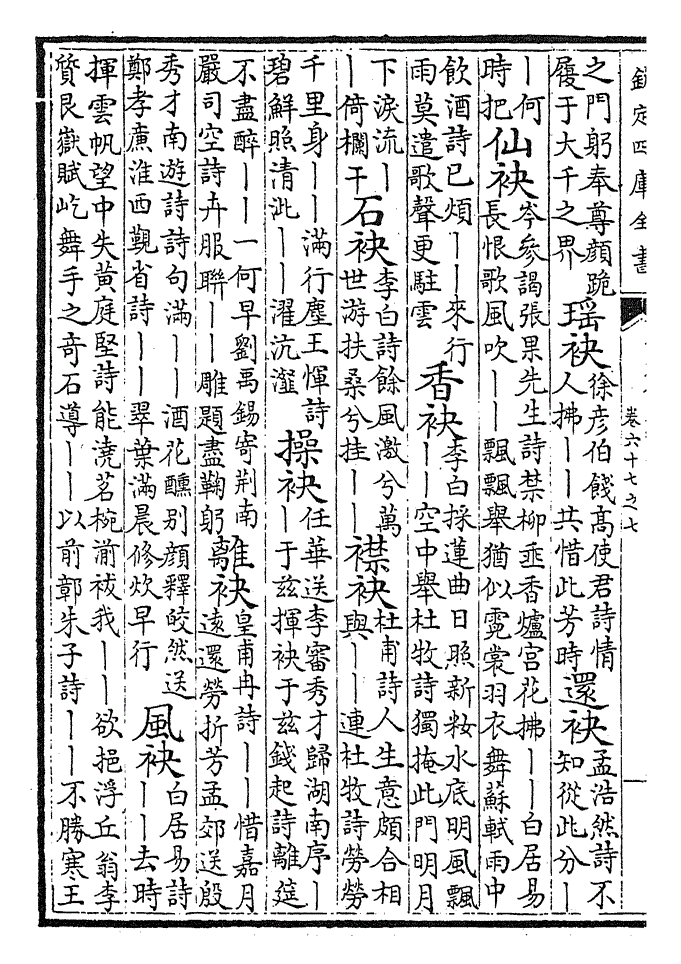 欽定四庫全書
卷六十七之七
之門躬奉尊顏跪履于大千之界 瑶袂 徐彥伯餞髙使君詩情人拂丨丨共惜此芳時 還袂 孟浩然詩不知從此分丨
丨何時把 仙袂 岑參謁張果先生詩禁柳垂香爐宫花拂丨丨白居易長恨歌風吹丨丨飄飄舉猶似霓裳羽衣舞蘇軾雨中
飲酒詩已煩丨丨來行雨莫遣歌聲更駐雲 香袂 李白採蓮曲日照新粧水底明風飄丨丨空中舉杜牧詩獨掩此門明月
下淚流丨丨倚欄干 石袂 李白詩餘風激兮萬世游扶桑兮挂丨丨 襟袂 杜甫詩人生意頗合相與丨丨連杜牧詩勞勞
千里身丨丨滿行塵王惲詩碧鮮照清泚丨丨濯沆瀣 操袂 任華送李審秀才歸湖南序丨丨于兹揮袂于兹錢起詩離筵
不盡醉丨丨一何早劉禹錫寄荆南嚴司空詩卉服聯丨丨雕題盡鞠躬 離袂 皇甫冉詩丨丨惜嘉月逺還勞折芳孟郊送殷
秀才南遊詩詩句滿丨丨酒花醺别顔釋皎然送鄭孝廉淮西覲省詩丨丨翠葉滿晨修炊早行 風袂 白居易詩丨丨去時
揮雲帆望中失黄庭堅詩能澆茗椀湔祓我丨丨欲挹浮丘翁李質艮嶽賦屹舞手之奇石導丨丨以前鄣朱子詩丨丨不勝寒王